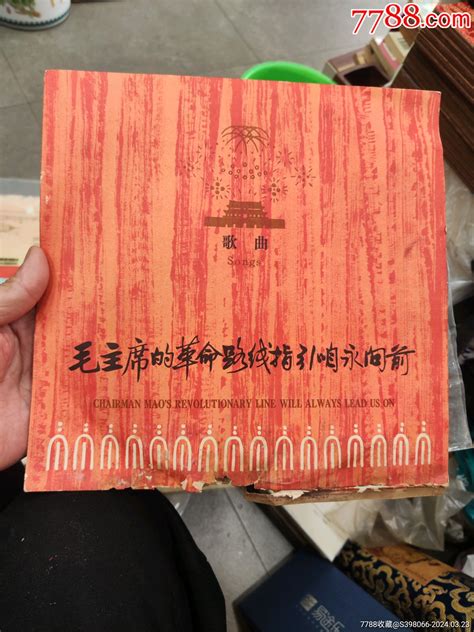 7788.com
歌曲
Songs
毛主席的革命路线指引咱永向前
CHAIRMAN MAO'S REVOLUTIONARY LINE WILL ALWAYS LEAD US ON
7788收藏@S398066-2024.03.23